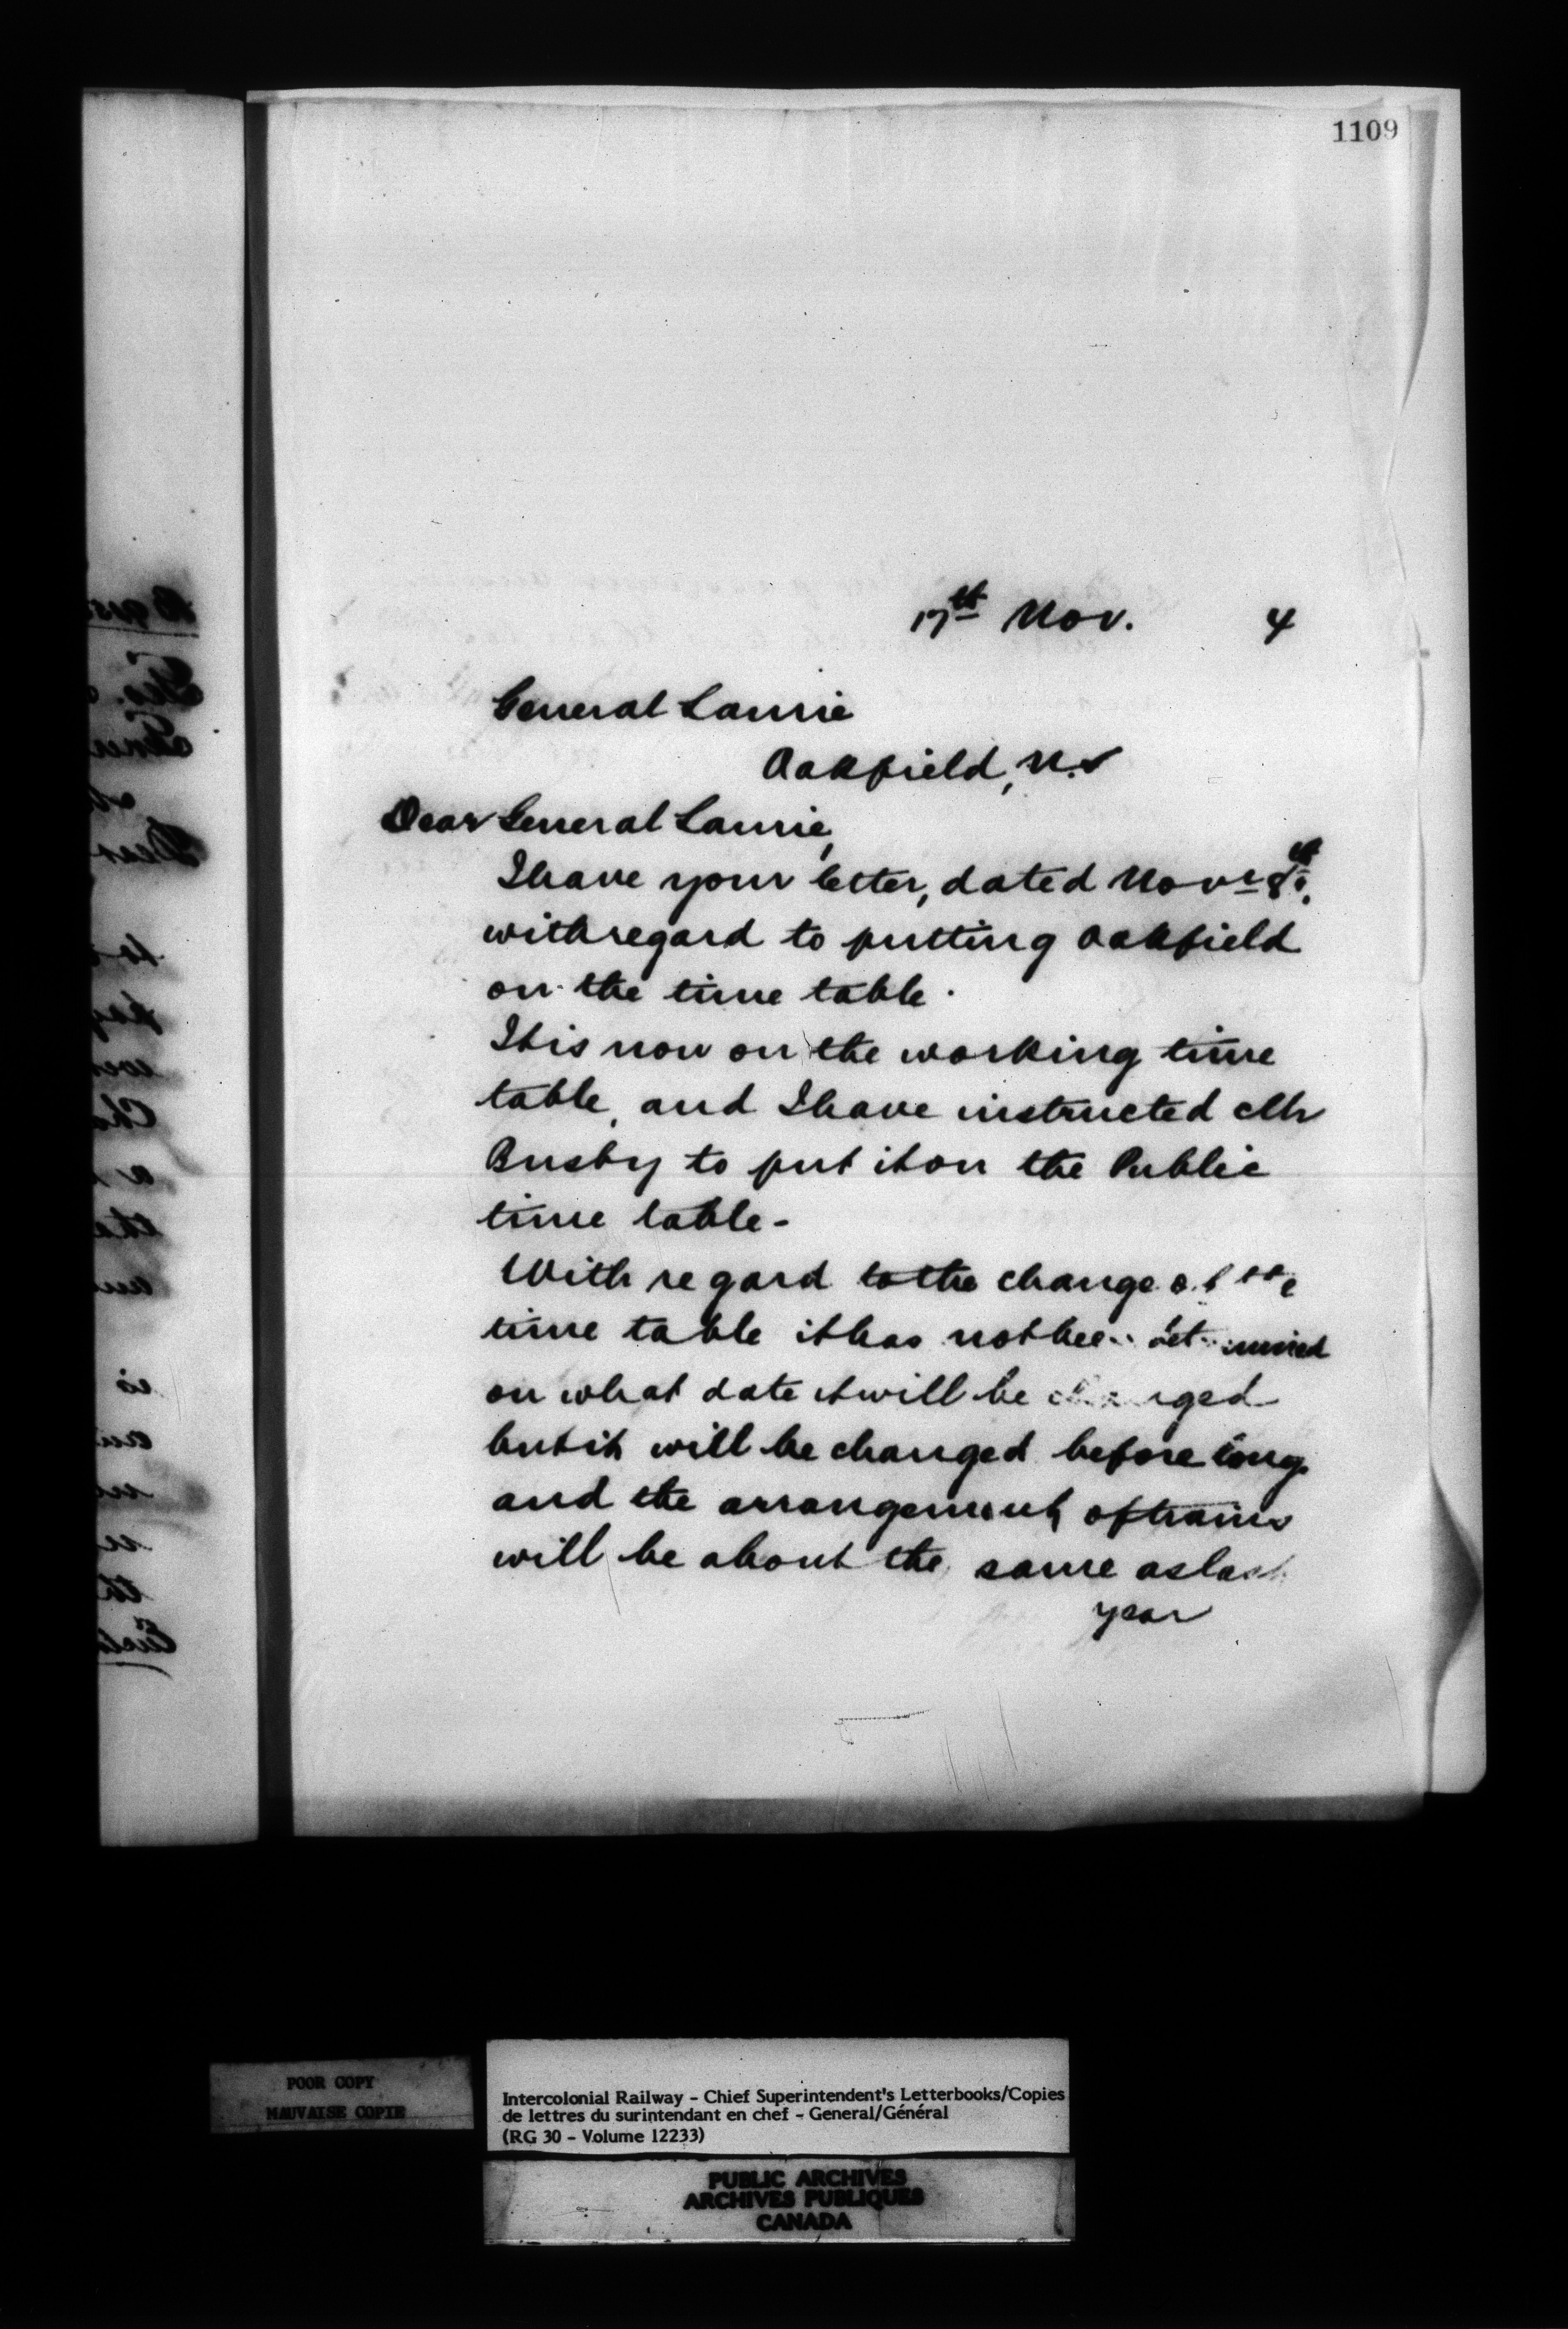 1109
17th Nov. 4
General Laurie
Oakfield, N.S
Dear General Laurie,
I have your letter, dated Novr 8th,
with regard to putting Oakfield
on the time table.
It is now on the working time
table, and I have instructed Mr
Busby to put it on the Public
time table-
With regard to the change of the
time table it has not been determined
on what date it will be changed
but it will be changed before long
and the arrangement of trains
will be about the same as last
year
POOR COPY
MAUVAISE COPIE
Intercolonial Railway - Chief Superintendent's Letterbooks/Copies
de lettres du surintendant en chef - General/Général
(RG 30 - Volume 12233)
PUBLIC ARCHIVES
ARCHIVES PUBLIQUES
CANADA